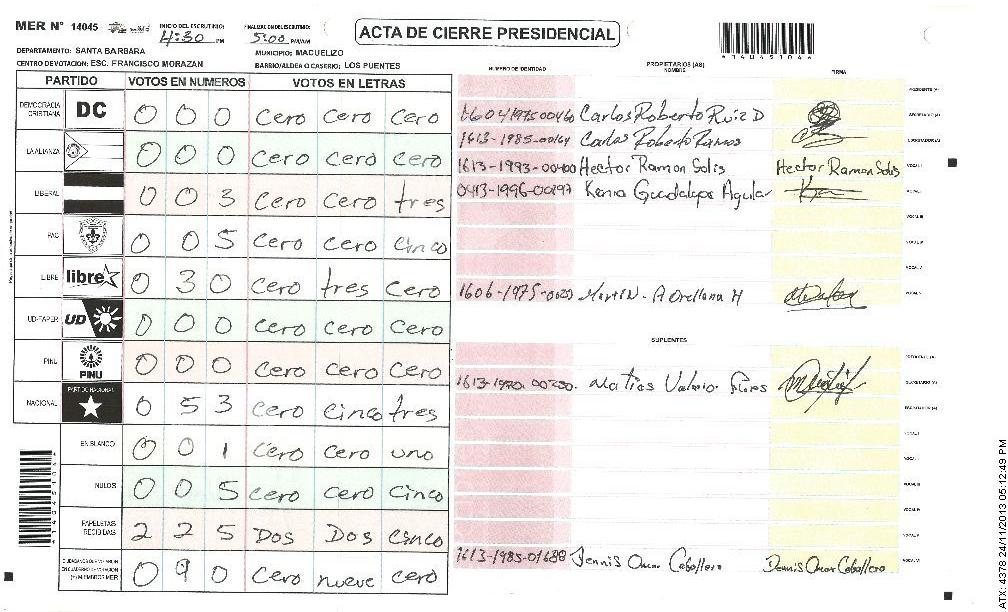 MER N° 14045 INICIO DEL ESCRUTINIO: 4:30 PM FINALIZACION DEL ESCRUTINIO: 5:00 PM/AM ACTA DE CIERRE PRESIDENCIAL
DEPARTAMENTO: SANTA BARBARA MUNICIPIO: MACUELIZO
CENTRO DE VOTACION: ESC. FRANCISCO MORAZAN BARRIO/ALDEA O CASERIO: LOS PUENTES
PARTIDO VOTOS EN NUMEROS VOTOS EN LETRAS
DEMOCRACIA CRISTIANA DC 0 0 0 cero cero cero
LA ALIANZA 0 0 0 cero cero cero
LIBERAL 0 0 3 cero cero tres
PAC 0 0 5 cero cero cinco
LIBRE libre 0 3 0 cero tres cero
UD-FAPER UD 0 0 0 cero cero cero
PINU PINU 0 0 0 cero cero cero
NACIONAL PARTIDO NACIONAL 0 5 3 cero cinco tres
EN BLANCO 0 0 1 cero cero uno
NULOS 0 0 5 cero cero cinco
PAPELETAS RECIBIDAS 2 2 5 Dos Dos cinco
CIUDADANOS QUE VOTARON EN CUADERNO DE VOTACION (+) MIEMBROS MER 0 9 0 cero nueve cero
NUMERO DE IDENTIDAD PROPIETARIOS (AS) NOMBRE FIRMA
PRESIDENTE (A)
Carlos Roberto Ruiz D SECRETARIO (A)
1613-1985-00164 Carlos Roberto Ramos ESCRUTADOR (A)
1613-1993-00400 Hector Ramon Solis Hector Ramon Solis VOCAL I
0413-1996-00297 Kenia Guadalupe Aguilar VOCAL II
VOCAL III
VOCAL IV
VOCAL V
Martin A Orellana H
SUPLENTES
PRESIDENTE (A)
Matias Valerio Flores SECRETARIO (A)
ESCRUTADOR (A)
VOCAL I
VOCAL II
VOCAL III
VOCAL IV
VOCAL V
1613-1985-01688 Dennis Omar Caballero Dennis Omar Caballero VOCAL VI
4140451044
ATX: 4378 24/11/2013 05:12:49 PM